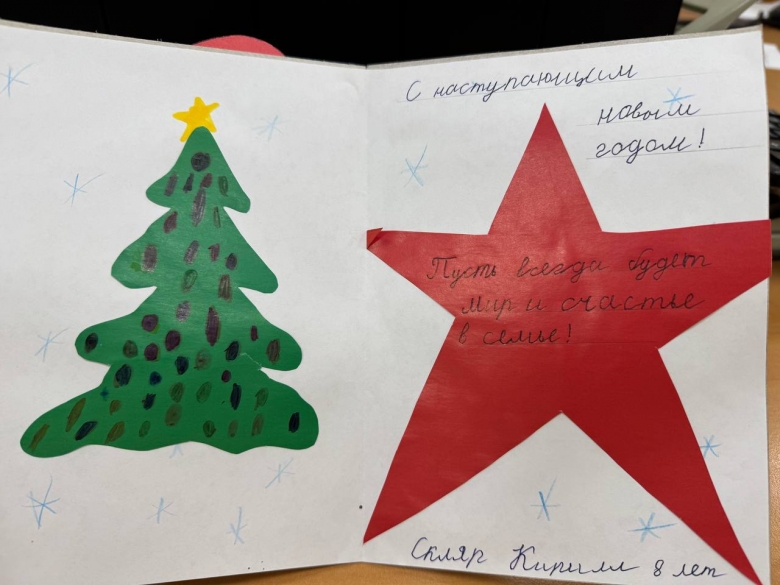 С наступающим
новым
годом!
Пусть всегда будет
мир и счастье
в семье!
Скляр Кирилл 8 лет